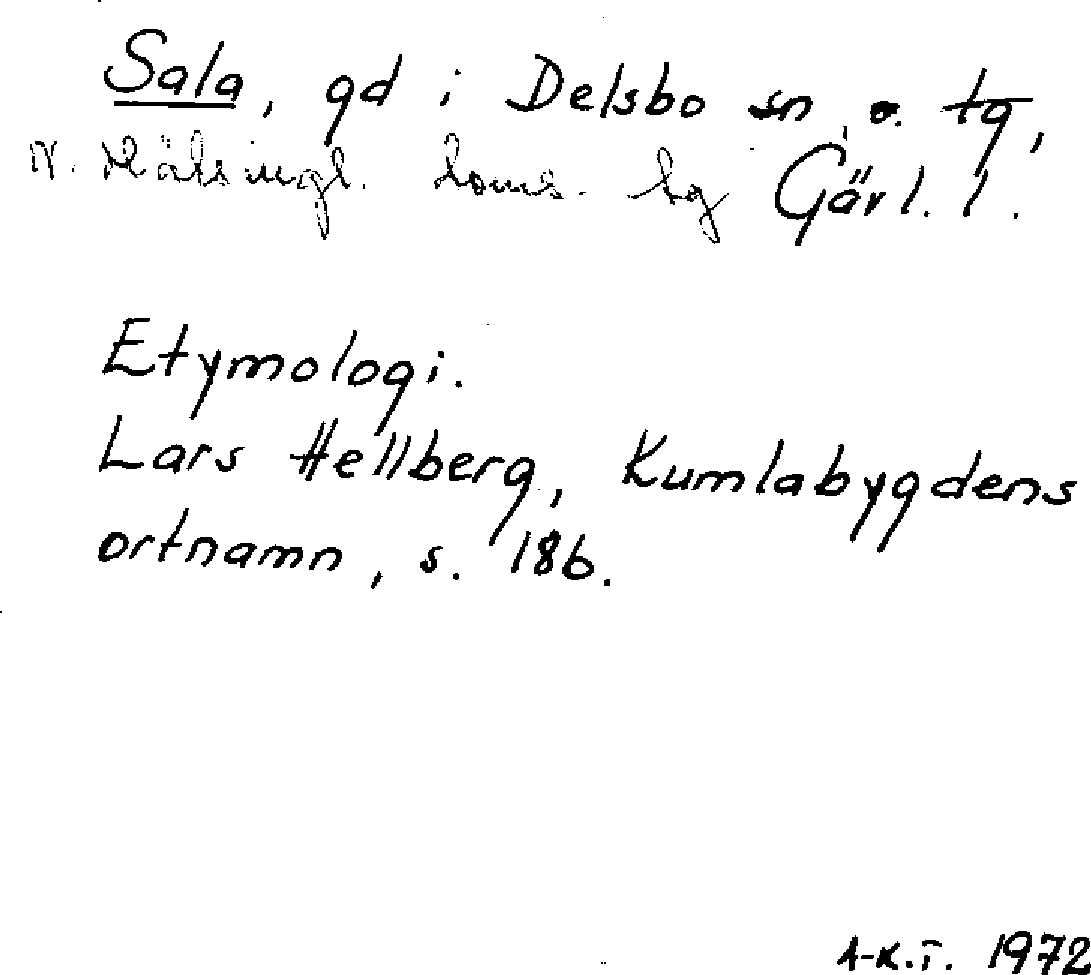 Sala, gd i Delsbo sn, o. tg,
N. Hälsingl. doms. tg Gävl. l.
Etymologi.
Lars Hellberg, Kumlabygdens
ortnamn, s. 186.
A-K.T. 1972